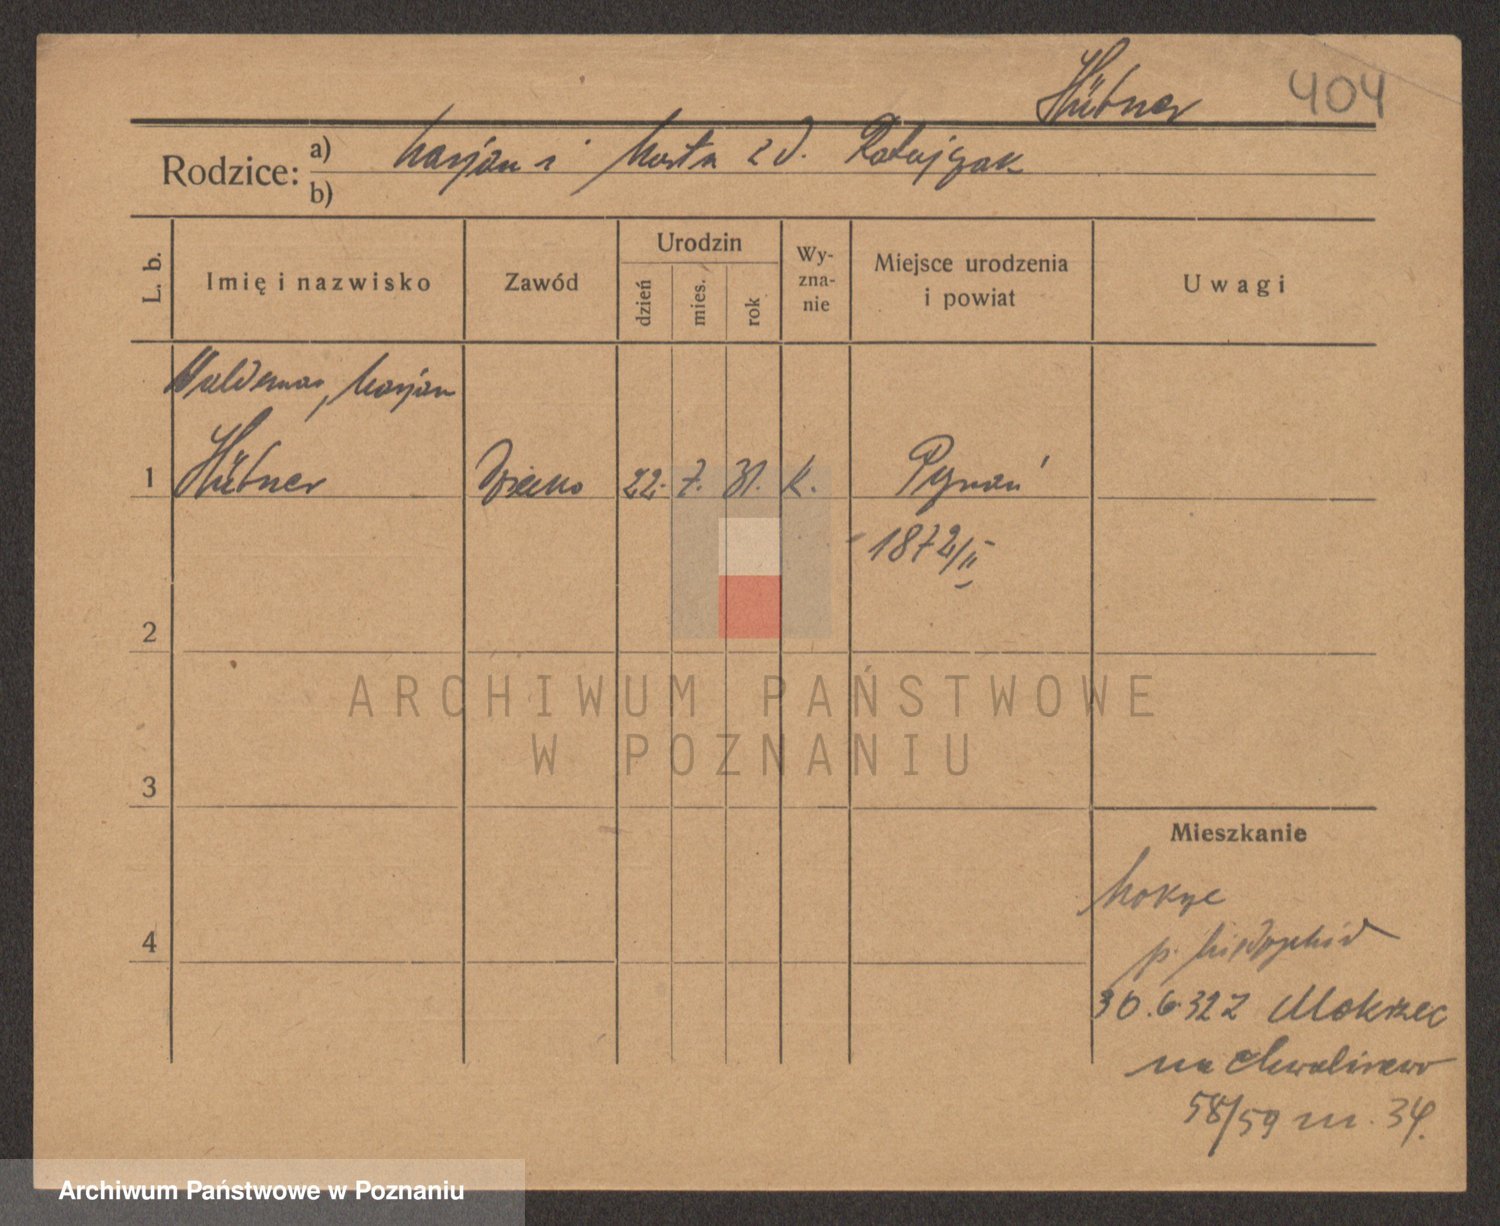 Hübner 404
Rodzice: a) Marjan i Marta z d. Ratajczak
b)
L. b. Imię i nazwisko Zawód Urodzin dzień mies. rok Wyznanie Miejsce urodzenia i powiat Uwagi
Waldemar, Marjan
1 Hübner Dziecko 22. 7. 31. k. Poznań
1872/II
2
ARCHIWUM PAŃSTWOWE
W POZNANIU
3
Mieszkanie
Mokrze
4
p.
30.6.32 z Mokrzec
na Chwaliszewo
58/59 m. 34.
Archiwum Państwowe w Poznaniu